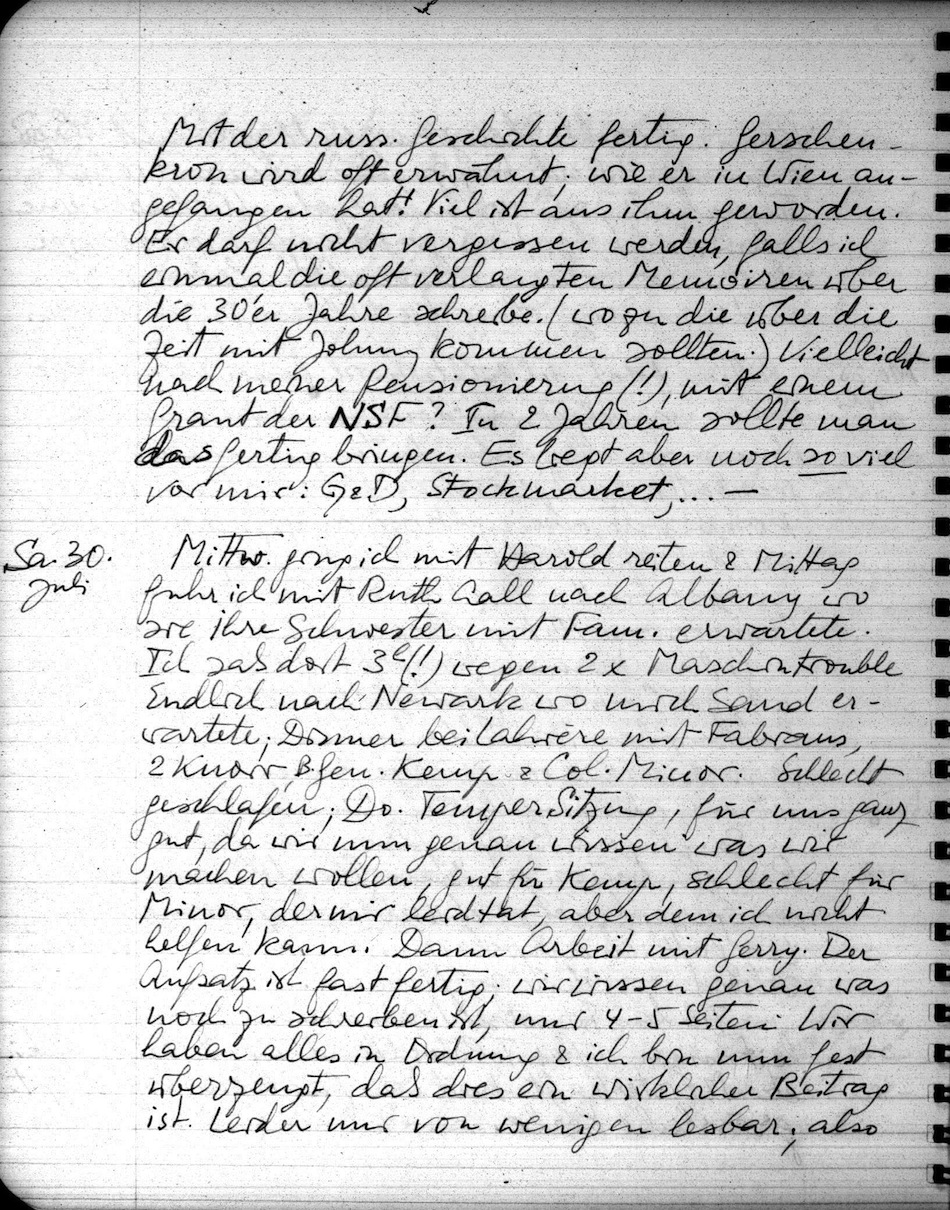 Mit der russ. Geschichte fertig. Gerschen-
kron wird oft erwähnt; wie er in Wien an-
gefangen hat! Viel ist aus ihm geworden.
Er darf nicht vergessen werden, falls ich
einmal die oft verlangten Memoiren über
die 30'er Jahre schreibe. (wozu die über die
Zeit mit Johnny kommen sollten.) Vielleicht
nach meiner Pensionierung (!), mit einem
Grant der NSF? In 2 Jahren sollte man
das fertig bringen. Es liegt aber noch so viel
vor mir: G&D, Stockmarket,... —
Sa. 30.
Juli
Mittw. ging ich mit Harold reiten & Mittag
fuhr ich mit Ruth Gall nach Albany wo
sie ihre Schwester mit Fam. erwartete.
Ich saß dort 3h(!) wegen 2x Maschintrouble
Endlich nach Newark wo mich Sand er-
wartete; Dinner bei Lahière mit Fabians,
2 Knorr, B.Gen. Kemp & Col. Minor. Schlecht
geschlafen; Do. Temper Sitzung, für uns ganz
gut, da wir nun genau wissen was wir
machen wollen, gut für Kemp, schlecht für
Minor, der mir leid tat, aber dem ich nicht
helfen kann. Dann Arbeit mit Gerry. Der
Aufsatz ist fast fertig; wir wissen genau was
noch zu schreiben ist, nur 4-5 Seiten. Wir
haben alles in Ordnung & ich bin nun fest
überzeugt, daß dies ein wirklicher Beitrag
ist. Leider nur von wenigen lesbar; also